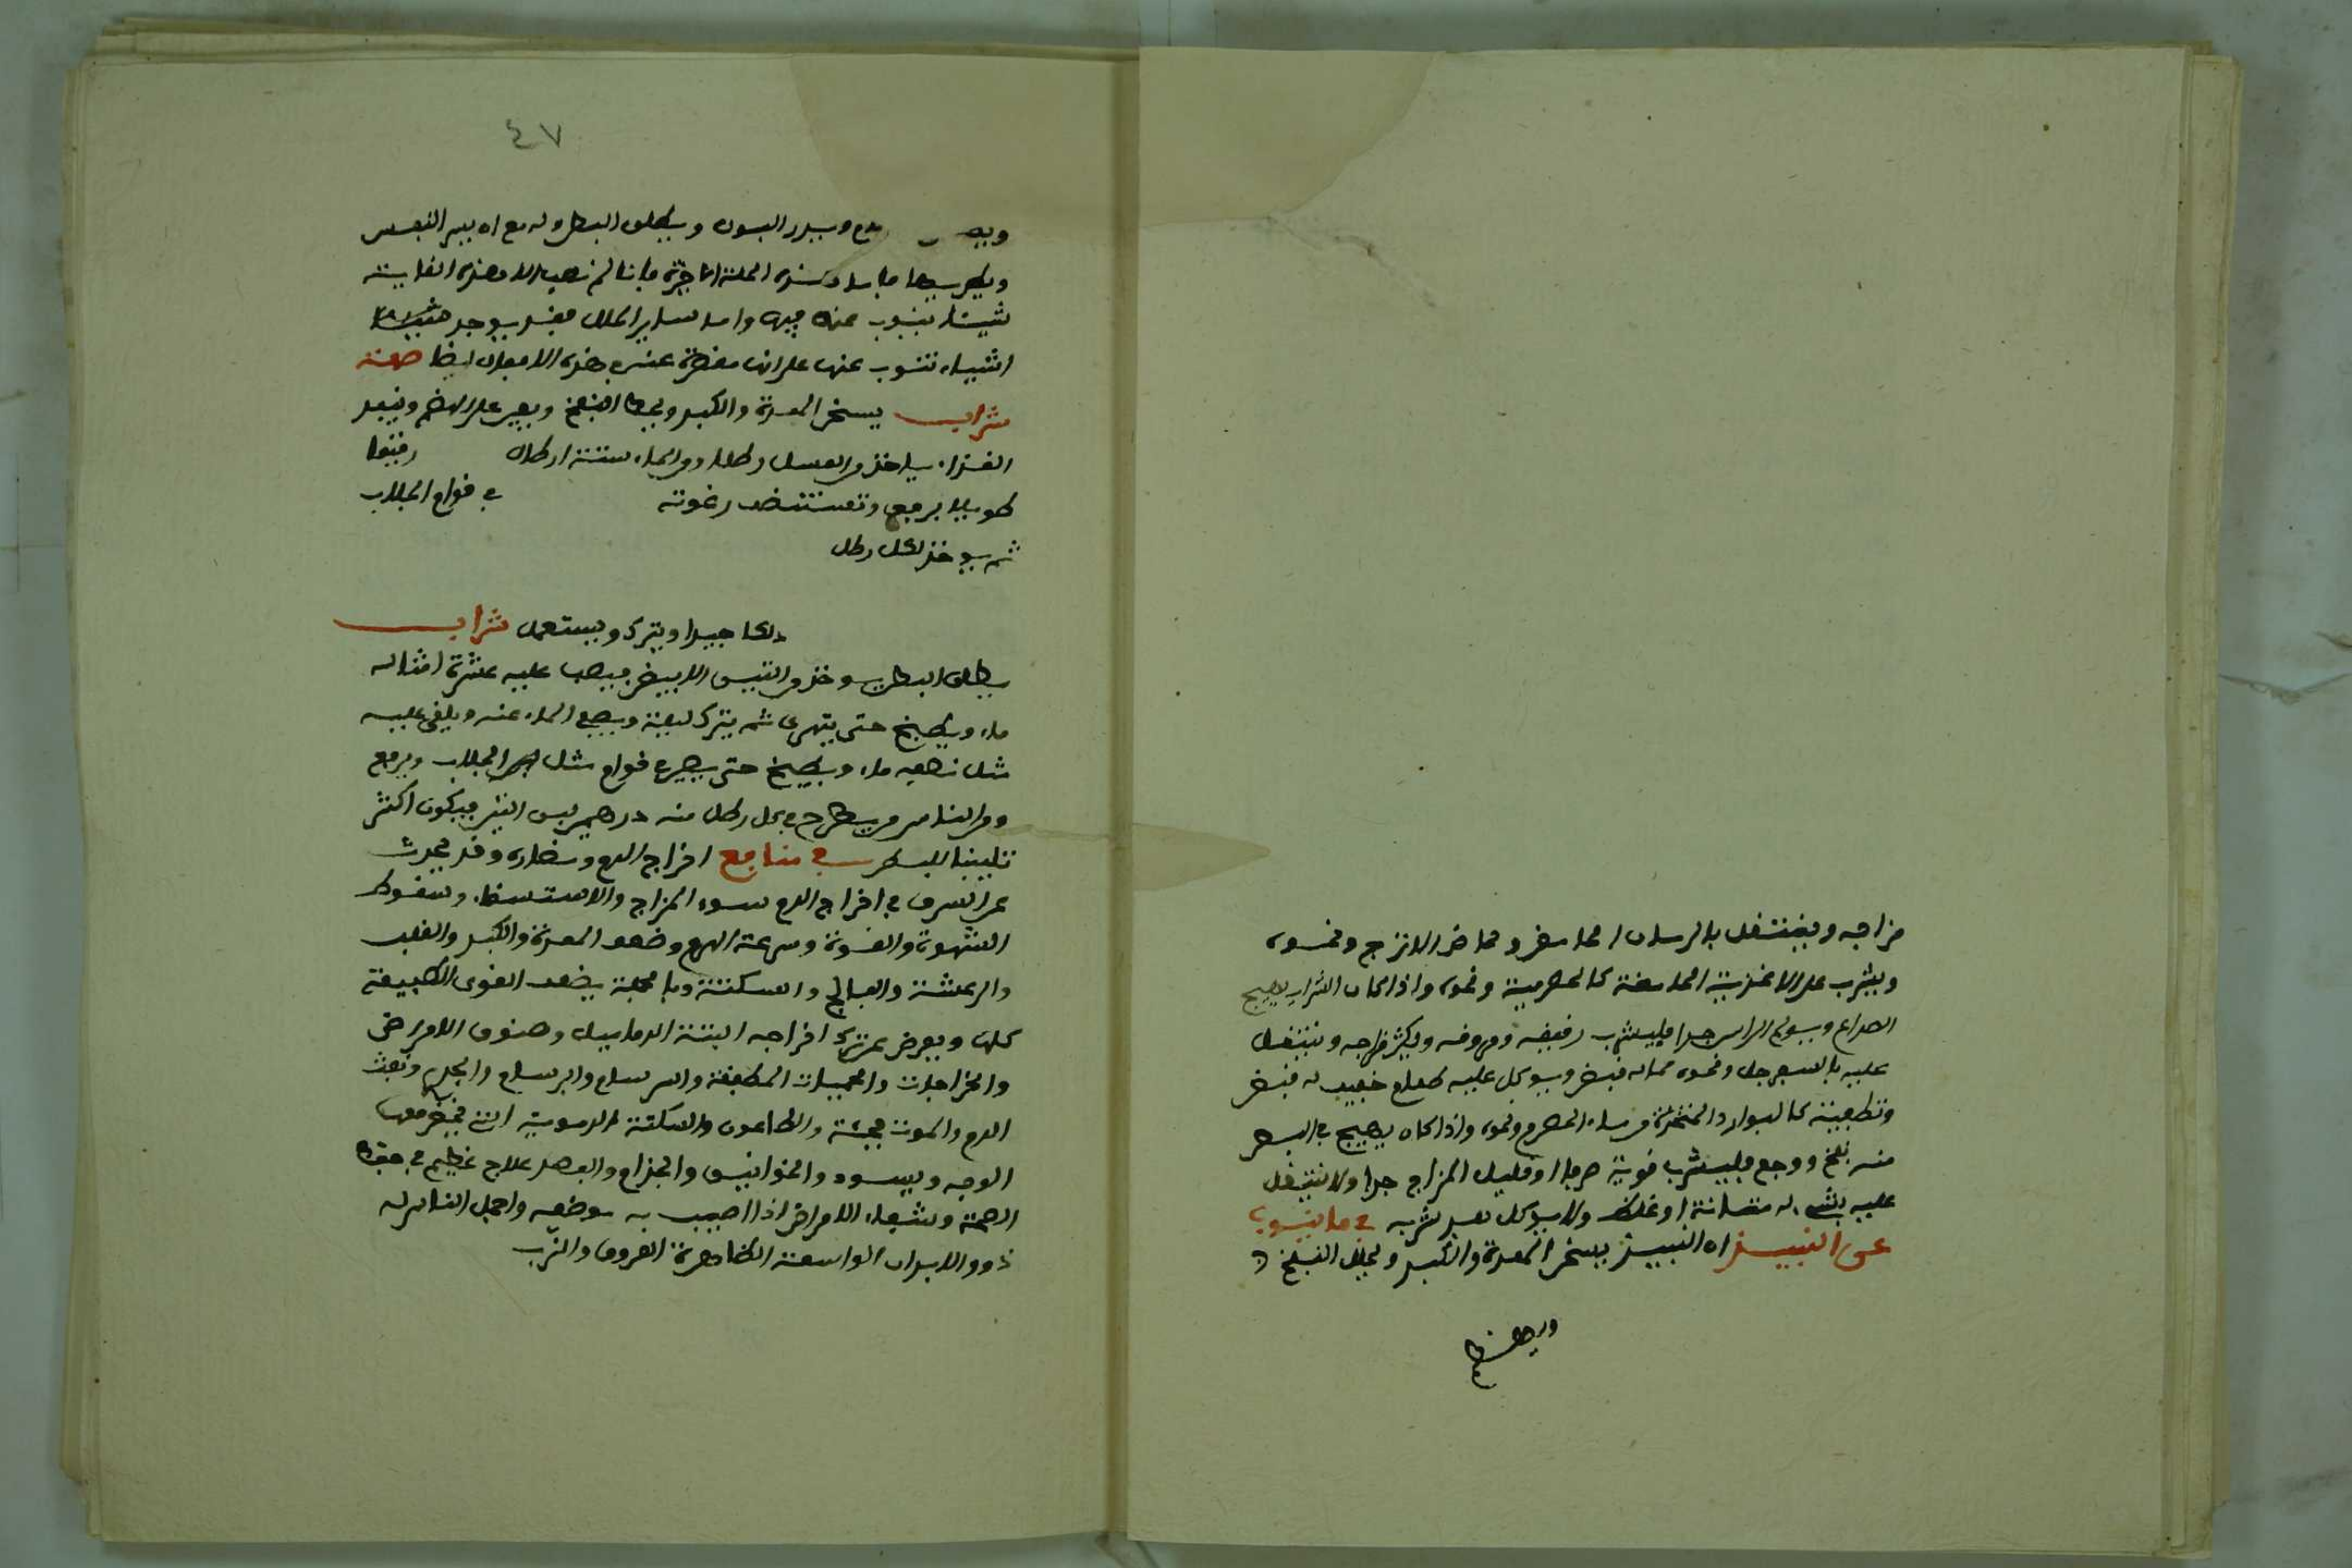 مزاجه وينتقل بالرمان الحامض وحماض الاترج ونحوه
ويشرب على الاغذية الحامضة كالحصرمية ونحوه واذا كان الشراب يهيج
الصداع ويولم الراس جدا فليشرب رقيقه ومروقه ويكثر مزاجه وينتقل
عليه بالسفرجل ونحوه مما له قبض ويوكل عليه طعام خفيف له قبض
وتطفية كالبوارد المتخذة من ماء الحصرم ونحوه واذا كان يهيج في البطن
منه نفخ ووجع فليشرب قوية صرفا او قليل المزاج جدا ولا ينتقل
عليه بشيء له متانة او غلظ ولا يوكل بعد شربه في ما ينوب
عن النبيذ ان النبيذ يسخن المعدة والكبد ويحلل النفخ
ويهضم
٤٧
ويدر البول ويطلق البطن وله مع ان يسر النفس
ويطربها فاما هذه الخلة الاخيرة فانا لم نصب الا هذه الغاية
شيئا ينوب عنه فيه واما ساير الخلال فقد يوجد
اشياء تنوب عنها على انها مقصرة عنه في هذه الافعال ايضا صفة
شراب يسخن المعدة والكبد ويحط النفخ ويعين على الهضم وينفذ
الغذاء ياخذ من العسل رطل ومن الماء ستة ارطال رقيقا
طويلا برفق وتستنضف رغوته في قوام الجلاب
ثم يوخذ لكل رطل
دلكا جيدا ويترك ويستعمل شراب
يطلق البطن يوخذ من التين الابيض فيصب عليه عشرة امثاله
ماء ويطبخ حتى يتهرى ثم يترك ليلة ويصفى الماء عنه ويلقى عليه
مثل نصفه ماء ويطبخ حتى يصير في قوام مثل الجلاب ويرفع
ومن الناس من يطرح في كل رطل منه درهمين لبن التين فيكون اكثر
تليينا للبطن في منافع اخراج الدم ومضاره وقد يحدث
عن السرف في اخراج الدم سوء المزاج والاستسقاء وسقوط
الشهوة والقوة وسرعة الهرم وضعف المعدة والكبد والقلب
والرعشة والفالج والسكتة وبالجملة يضعف القوى الطبيعة
كلها ويعرض عن ترك اخراجه البتة الدماميل وصنوف الامراض
والخراجات والحميات المطبقة والسرسام والبرسام والجدري ونفث
الدم والموت فجئة والطاعون والسكتة الدموية التي يخضر معها
الوجه ويسود والخوانيق والجذام والفصد علاج عظيم في حفظ
الصحة وشفاء الامراض اذا اصيب به موضعه واحمل الناس له
ذوو الابدان الواسعة الظاهرة العروق والزب